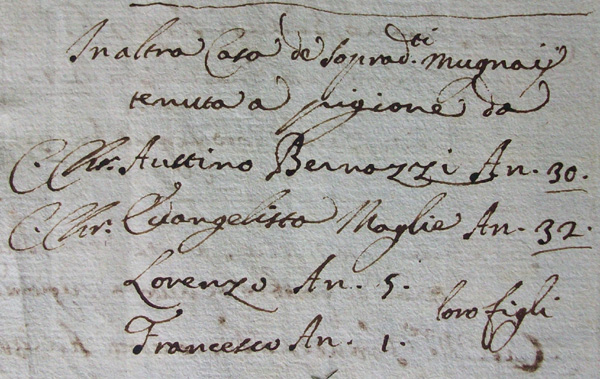 In altra Casa de Soprad.ti Mugnaij
tenuta a pigione da
C. Chr. Austino Bernazzi An. 30.
C. Chr. Evangelista Moglie An. 32.
Lorenzo An. 5.
Francesco An. 1. loro figli